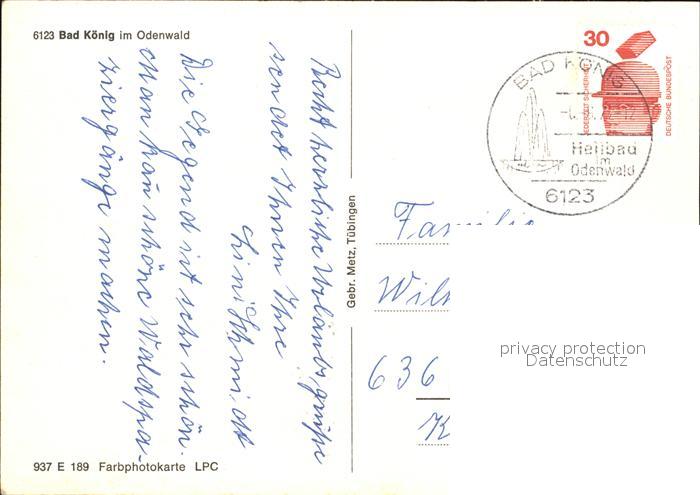 6123 Bad König im Odenwald
Recht herzliche Urlaubsgrüße
sendet Ihnen Ihre
Lini Schmidt
Die Gegend ist sehr schön.
Man kan schöne Waldspa-
ziergänge machen.
937 E 189 Farbphotokarte LPC
Gebr. Metz, Tübingen
30
JEDERZEIT SICHERHEIT
DEUTSCHE BUNDESPOST
BAD KÖNIG
Heilbad
im
Odenwald
6123
Familie
636
privacy protection
Datenschutz